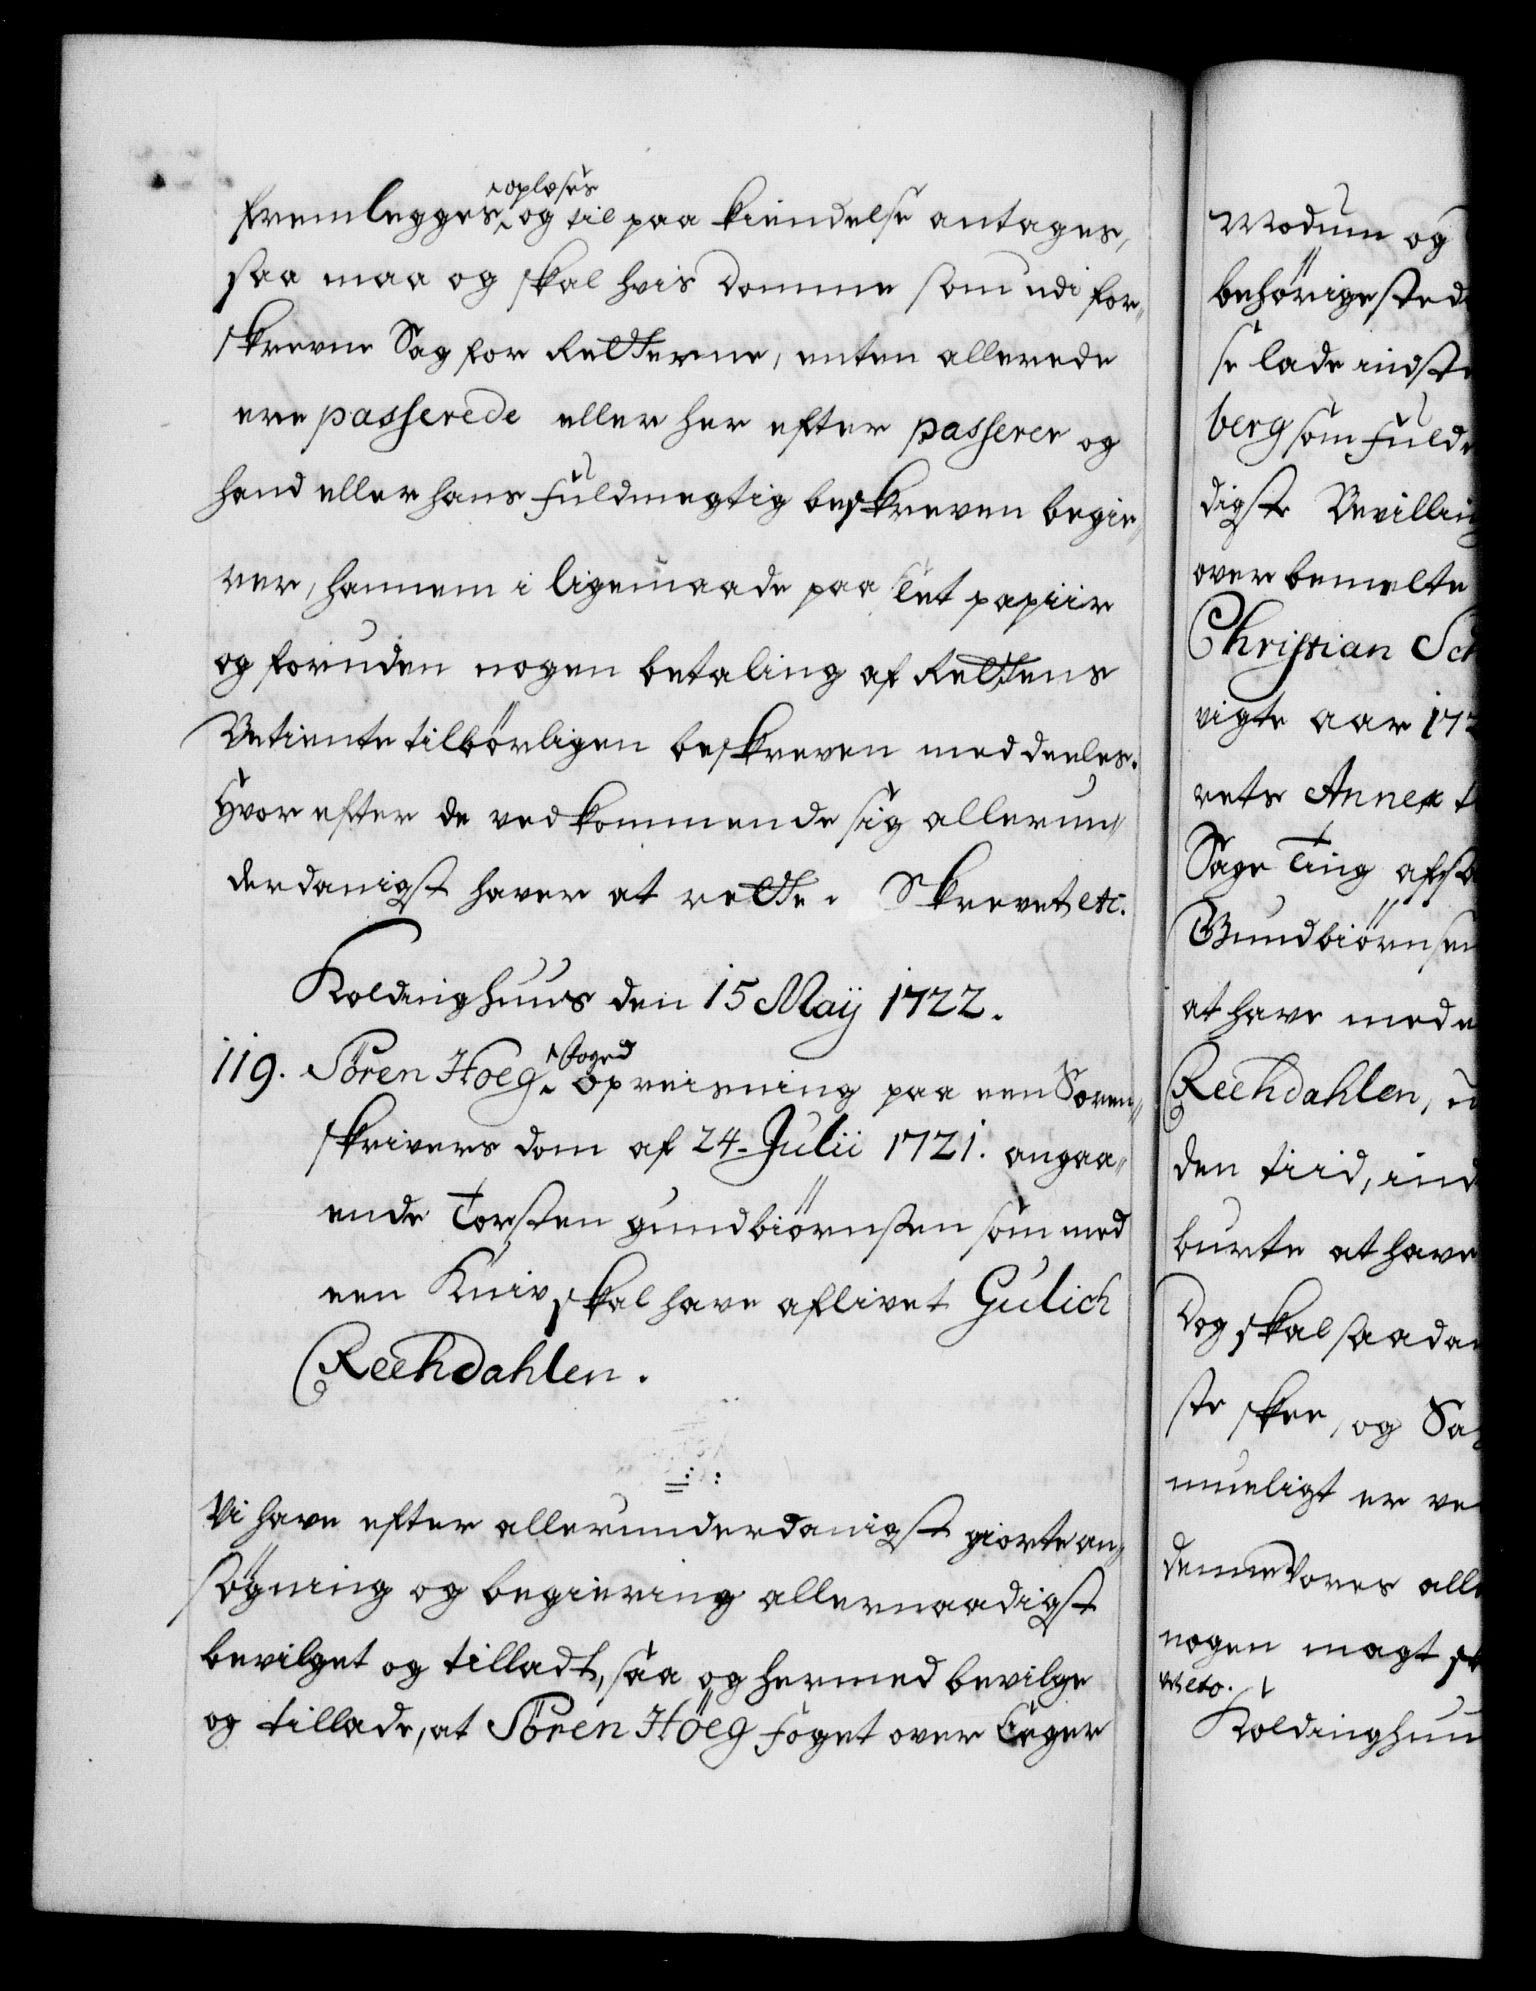 fremlegges, oplæses og til paa kiendelse antages,
saa maa og skal hvis Domme som udi for„
skrevne Sag for Retterne, enten allerede
ere passerede eller her efter passerer og
hand eller hans fuldmegtig beskreven begie„
rer, hannem i ligemaade paa slet papiir
og foruden nogen betaling af Rettens
Betiente tilbörligen beskreven meddeeles.
Hvor efter de vedkommende sig allerun„
derdanigst haver at rette. Skrevet etc.
Koldinghuus den 15 Maÿ 1722.
119. Sören Hoeg Foged opreisning paa een Soren„
skrivers dom af 24. Julii 1721. angaa„
ende Torsten gundbiörnsen som med
een Kniv skal have aflivet Gulich
Reehdahlen.
Vi have efter allerunderdanigst giorte an„
søgning og begiering allernaadigst
bevilget og tilladt, saa og hermed bevilge
og tillade, at Sören Höeg foget over Eeger
Modum og
behörige sted
se lade indste
berg som fuld
digste Bevilling
over bemelte
Christian Sch
vigte aar 172
rets Annex t
Sage Ting afsa
Gundbiörnsen
at have med e
Reehdahlen, u
den tiid, ind
burte at have
Dog skal saadan
ste skee, og Sag
mueligt er ve
denne Vores alle
nogen magt sk
Koldinghuu